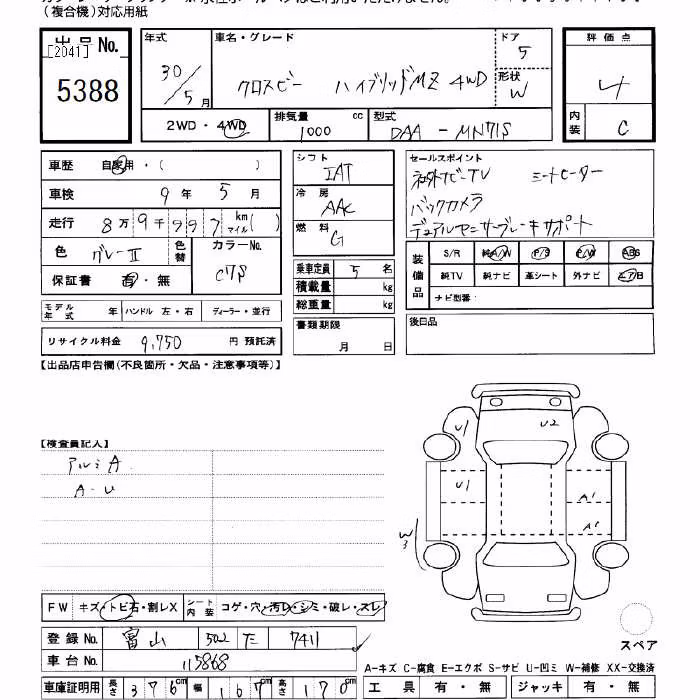 (複合機)対応用紙
出品No. [2041] 5388
年式 30/5月
車名・グレード クロスビー ハイブリッドMZ 4WD
ドア 5
形状 W
評価点 4
内装 C
2WD・4WD
排気量 1000 cc
型式 DAA-MN71S
車歴 自家用・( )
車検 9年 5月
走行 8万9千997 km マイル( )
色 グレーⅡ 色替
カラーNo. C7S
保証書 有・無
モデル年式 年 ハンドル 左・右 ディーラー・並行
リサイクル料金 9,750 円 預託済
シフト IAT
冷房 AAC
燃料 G
乗車定員 5名
積載量 kg
総重量 kg
書類期限 月 日
セールスポイント
社外ナビ-TV シートヒーター
バックカメラ
デュアルセンサーブレーキサポート
装備品 S/R 純A/W P/S P/W ABS
純TV 純ナビ 革シート 外ナビ エアB
ナビ型番:
後日品
【出品店申告欄(不良箇所・欠品・注意事項等)】
【検査員記入】
アルミA
A-U
U1 U2
U1 A1
W3 A1
FW キズ・トビ石・割レX シート内装 コゲ・穴・汚レ・シミ・破レ・スレ
登録No. 富山 502 た 7411
車台No. 115868
車庫証明用 長さ 376cm 幅 167cm 高さ 170cm
スペア
A-キズ C-腐食 E-エクボ S-サビ U-凹ミ W-補修 XX-交換済
工具 有・無 ジャッキ 有・無